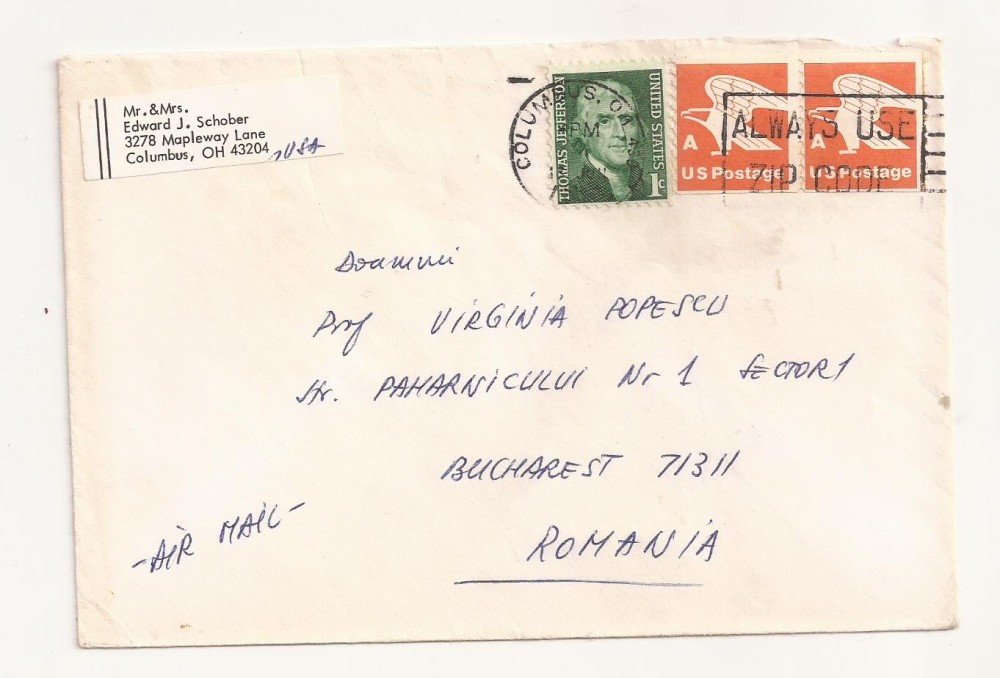 Mr. &Mrs.
Edward J. Schober
3278 Mapleway Lane
Columbus, OH 43204 USA
COLUMBUS, O
PM
THOMAS JEFFERSON
UNITED STATES
1c
A
US Postage
A
US Postage
ALWAYS USE
ZIP CODE
Doamnei
Prof VIRGINIA POPESCU
Str. PAHARNICULUI Nr 1 SECTOR 1
BUCHAREST 71311
ROMANIA
- AIR MAIL -